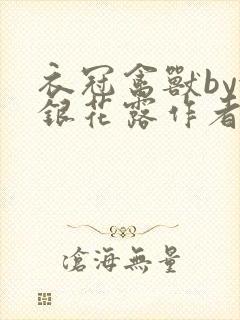 衣冠禽獸by
銀花露作者
滄海無量